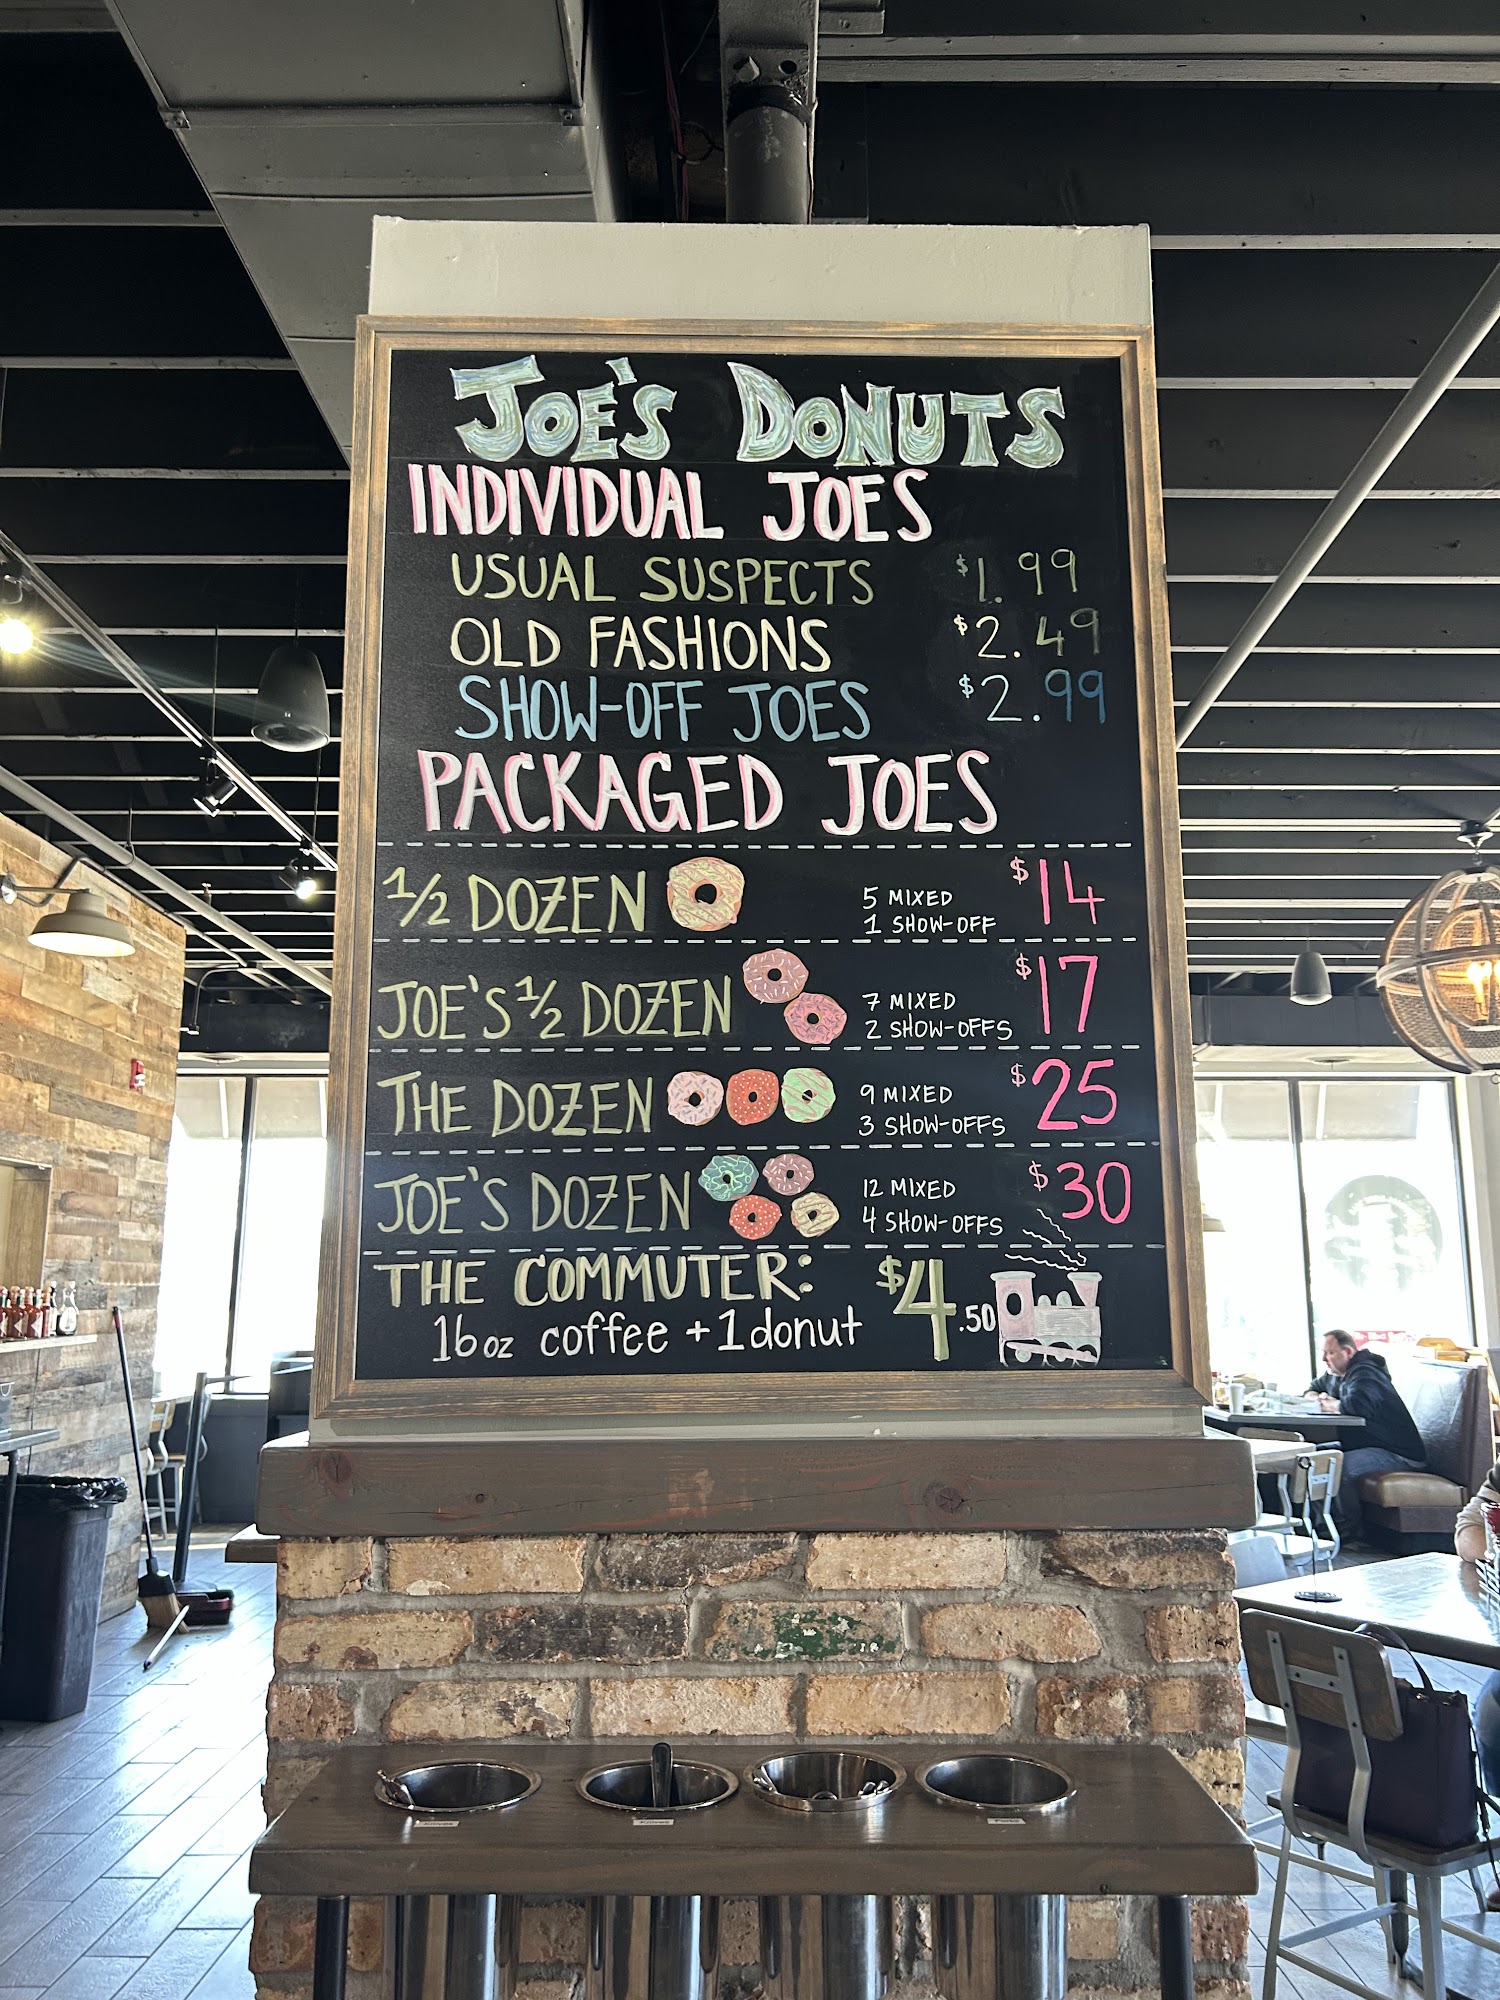 JOE'S DONUTS
INDIVIDUAL JOES
USUAL SUSPECTS $1.99
OLD FASHIONS $2.49
SHOW-OFF JOES $2.99
PACKAGED JOES
1/2 DOZEN 5 MIXED 1 SHOW-OFF $14
JOE'S 1/2 DOZEN 7 MIXED 2 SHOW-OFFS $17
THE DOZEN 9 MIXED 3 SHOW-OFFS $25
JOE'S DOZEN 12 MIXED 4 SHOW-OFFS $30
THE COMMUTER: $4.50
16oz coffee + 1 donut